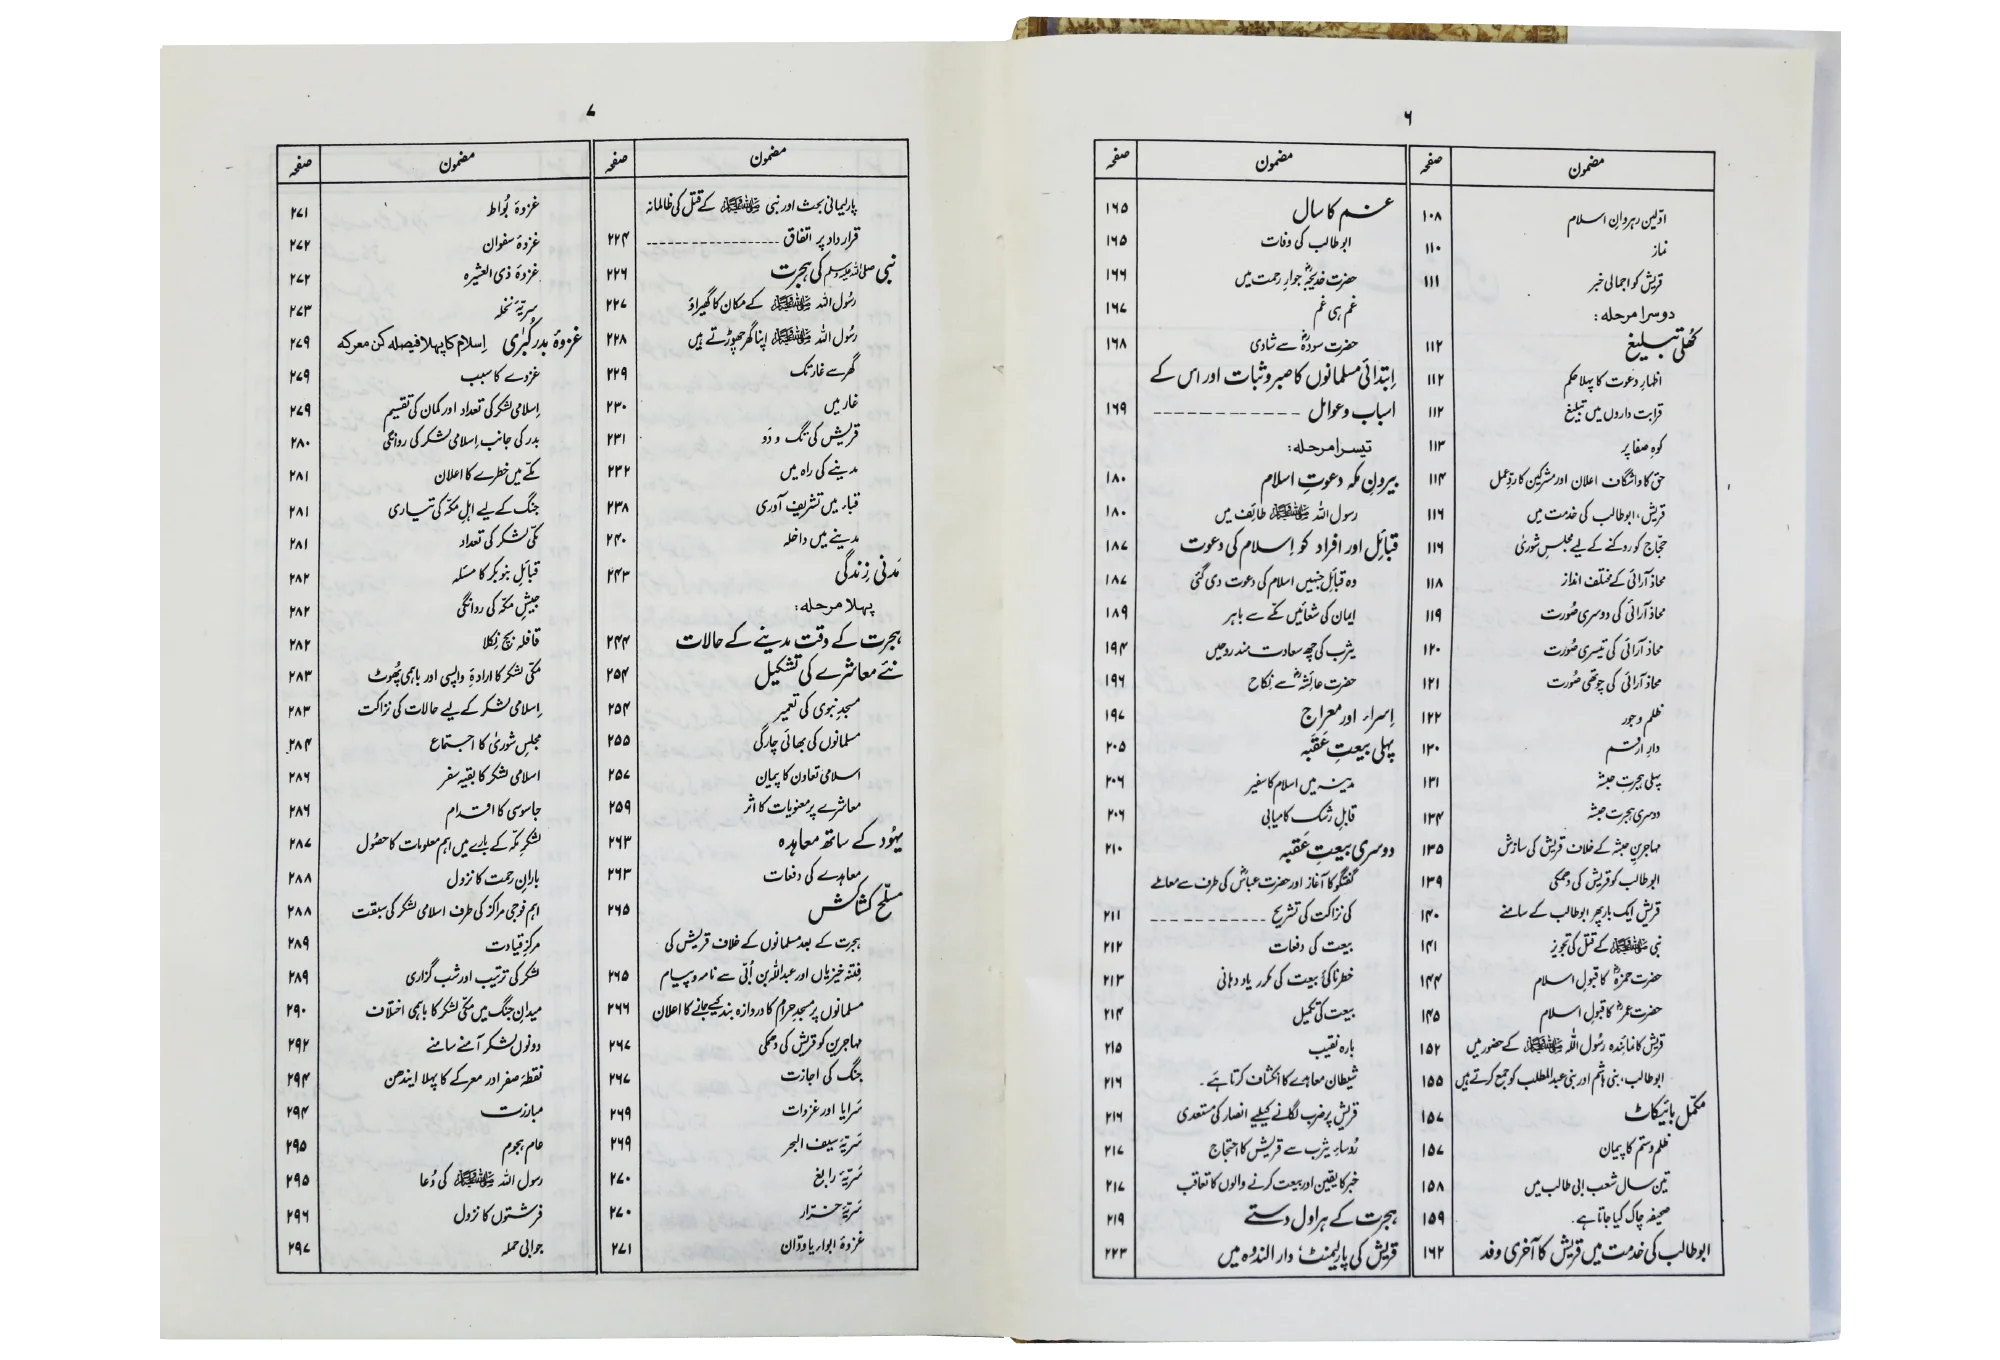 ۶
مضمون صفحہ
اوّلین رہروانِ اسلام ۱۰۸
نماز ۱۱۰
قریش کو اجمالی خبر ۱۱۱
دوسرا مرحلہ:
کھُلی تبلیغ ۱۱۲
اظہارِ دعوت کا پہلا حکم ۱۱۲
قرابت داروں میں تبلیغ ۱۱۲
کوہِ صفا پر ۱۱۳
حق کا واشگاف اعلان اور مشرکین کا ردِّ عمل ۱۱۴
قریش، ابوطالب کی خدمت میں ۱۱۶
حجّاج کو روکنے کے لیے مجلسِ شوریٰ ۱۱۶
محاذ آرائی کے مختلف انداز ۱۱۸
محاذ آرائی کی دوسری صُورت ۱۱۹
محاذ آرائی کی تیسری صُورت ۱۲۰
محاذ آرائی کی چوتھی صُورت ۱۲۱
ظلم و جور ۱۲۲
دارِ ارقم ۱۳۰
پہلی ہجرتِ حبشہ ۱۳۱
دوسری ہجرت حبشہ ۱۳۴
مہاجرینِ حبشہ کے خلاف قریش کی سازش ۱۳۵
ابوطالب کو قریش کی دھمکی ۱۳۹
قریش ایک بار پھر ابوطالب کے سامنے ۱۴۰
نبی ﷺ کے قتل کی تجویز ۱۴۱
حضرت حمزہؓ کا قبولِ اسلام ۱۴۴
حضرت عمرؓ کا قبولِ اسلام ۱۴۵
قریش کا نمائندہ رسُول اللہ ﷺ کے حضور میں ۱۵۲
ابوطالب، بنی ہاشم اور بنی عبدالمطلب کو جمع کرتے ہیں ۱۵۵
مکمّل بائیکاٹ ۱۵۷
ظلم و ستم کا پیمان ۱۵۷
تین سال شعب ابی طالب میں ۱۵۸
صحیفہ چاک کیا جاتا ہے۔ ۱۵۹
ابوطالب کی خدمت میں قریش کا آخری وفد ۱۶۲
مضمون صفحہ
غم کا سال ۱۶۵
ابوطالب کی وفات ۱۶۵
حضرت خدیجہؓ جوارِ رحمت میں ۱۶۶
غم ہی غم ۱۶۷
حضرت سودہؓ سے شادی ۱۶۸
اِبتدائی مسلمانوں کا صبر و ثبات اور اس کے
اسباب و عوامل ------------ ۱۶۹
تیسرا مرحلہ:
بیرونِ مکہ دعوتِ اسلام ۱۸۰
رسُول اللہ ﷺ طائف میں ۱۸۰
قبائِل اور افراد کو اِسلام کی دعوت ۱۸۷
وہ قبائِل جنہیں اسلام کی دعوت دی گئی ۱۸۷
ایمان کی شعائیں مکّے سے باہر ۱۸۹
یثرب کی چھ سعادت مند روحیں ۱۹۴
حضرت عائشہؓ سے نِکاح ۱۹۶
اِسراء اور معراج ۱۹۷
پہلی بیعتِ عَقَبہ ۲۰۵
مدینہ میں اسلام کا سفیر ۲۰۶
قابلِ رشک کامیابی ۲۰۶
دوسری بیعتِ عَقبہ ۲۱۰
گفتگو کا آغاز اور حضرت عباسؓ کی طرف سے معاملے
کی نزاکت کی تشریح ------------ ۲۱۱
بیعت کی دفعات ۲۱۲
خطرناکیٔ بیعت کی مکرر یاد دہانی ۲۱۳
بیعت کی تکمیل ۲۱۴
بارہ نقیب ۲۱۵
شیطان معاہدے کا انکشاف کرتا ہے۔ ۲۱۶
قریش پر ضرب لگانے کیلیے انصار کی مستعدی ۲۱۶
رُؤساءِ یثرب سے قریش کا احتجاج ۲۱۷
خبر کا یقین اور بیعت کرنے والوں کا تعاقب ۲۱۷
ہجرت کے ہراول دستے ۲۱۹
قریش کی پارلیمنٹ؛ دار الندوہ میں ۲۲۳
۷
مضمون صفحہ
پارلیمانی بحث اور نبی ﷺ کے قتل کی ظالمانہ
قرارداد پر اتفاق ------------ ۲۲۴
نبی صلی اللہ علیہ وسلم کی ہجرت ۲۲۶
رسُول اللہ ﷺ کے مکان کا گھیراؤ ۲۲۷
رسُول اللہ ﷺ اپنا گھر چھوڑتے ہیں ۲۲۸
گھر سے غار تک ۲۲۹
غار میں ۲۳۰
قریش کی تگ و دَو ۲۳۱
مدینے کی راہ میں ۲۳۲
قباء میں تشریف آوری ۲۳۸
مدینے میں داخلہ ۲۴۰
مَدنی زندگی ۲۴۳
پہلا مرحلہ:
ہجرت کے وقت مدینے کے حالات ۲۴۴
نئے معاشرے کی تشکیل ۲۵۴
مسجدِ نبوی کی تعمیر ۲۵۴
مسلمانوں کی بھائی چارگی ۲۵۵
اسلامی تعاون کا پیمان ۲۵۷
معاشرے پر معنویات کا اثر ۲۵۹
یہُود کے ساتھ معاہدہ ۲۶۳
معاہدے کی دفعات ۲۶۳
مسلّح کشاکش ۲۶۵
ہجرت کے بعد مسلمانوں کے خلاف قریش کی
فِتنہ خیزیاں اور عبداللہ بن اُبَیّ سے نامہ و پیام ۲۶۵
مسلمانوں پر مسجدِ حرام کا دروازہ بند کیے جانے کا اعلان ۲۶۶
مہاجرین کو قریش کی دھمکی ۲۶۷
جنگ کی اجازت ۲۶۷
سَرایا اور غزوات ۲۶۹
سَریّۂ سیف البحر ۲۶۹
سَریّۂ رابغ ۲۷۰
سَریّۂ خرّار ۲۷۰
غزوۂ ابواء یا ودّان ۲۷۱
مضمون صفحہ
غزوۂ بُواط ۲۷۱
غزوۂ سفوان ۲۷۲
غزوۂ ذی العشیرہ ۲۷۲
سریّۂ نخلہ ۲۷۳
غزوۂ بدرِ کُبریٰ اِسلام کا پہلا فیصلہ کن معرکہ ۲۷۹
غزوے کا سبب ۲۷۹
اِسلامی لشکر کی تعداد اور کمان کی تقسیم ۲۷۹
بدر کی جانب اِسلامی لشکر کی روانگی ۲۸۰
مکّے میں خطرے کا اعلان ۲۸۱
جنگ کے لیے اہلِ مکّہ کی تیاری ۲۸۱
مکّی لشکر کی تعداد ۲۸۱
قبائلِ بنو بکر کا مسئلہ ۲۸۲
جیشِ مکّہ کی روانگی ۲۸۲
قافلہ بچ نِکلا ۲۸۲
مکّی لشکر کا ارادۂ واپسی اور باہمی پھُوٹ ۲۸۳
اِسلامی لشکر کے لیے حالات کی نزاکت ۲۸۳
مجلسِ شوریٰ کا اجتماع ۲۸۴
اسلامی لشکر کا بقیہ سفر ۲۸۶
جاسوسی کا اقدام ۲۸۶
لشکرِ مکّہ کے بارے میں اہم معلومات کا حصُول ۲۸۷
بارانِ رحمت کا نزول ۲۸۸
اہم فوجی مراکز کی طرف اسلامی لشکر کی سبقت ۲۸۸
مرکزِ قیادت ۲۸۹
لشکر کی ترتیب اور شب گزاری ۲۸۹
میدانِ جنگ میں مکّی لشکر کا باہمی اختلاف ۲۹۰
دونوں لشکر آمنے سامنے ۲۹۲
نقطۂ صفر اور معرکے کا پہلا ایندھن ۲۹۴
مبارزت ۲۹۴
عام ہجوم ۲۹۵
رسول اللہ ﷺ کی دُعا ۲۹۵
فرشتوں کا نزول ۲۹۶
جوابی حملہ ۲۹۷